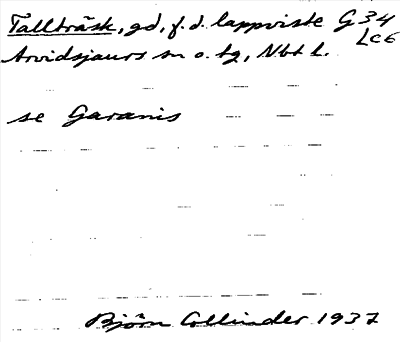 Tallträsk, gd, f.d. lappviste G 34
Lc6
Arvidsjaurs sn o. tg, Nbt l.
se Garanis
Björn Collinder 1937